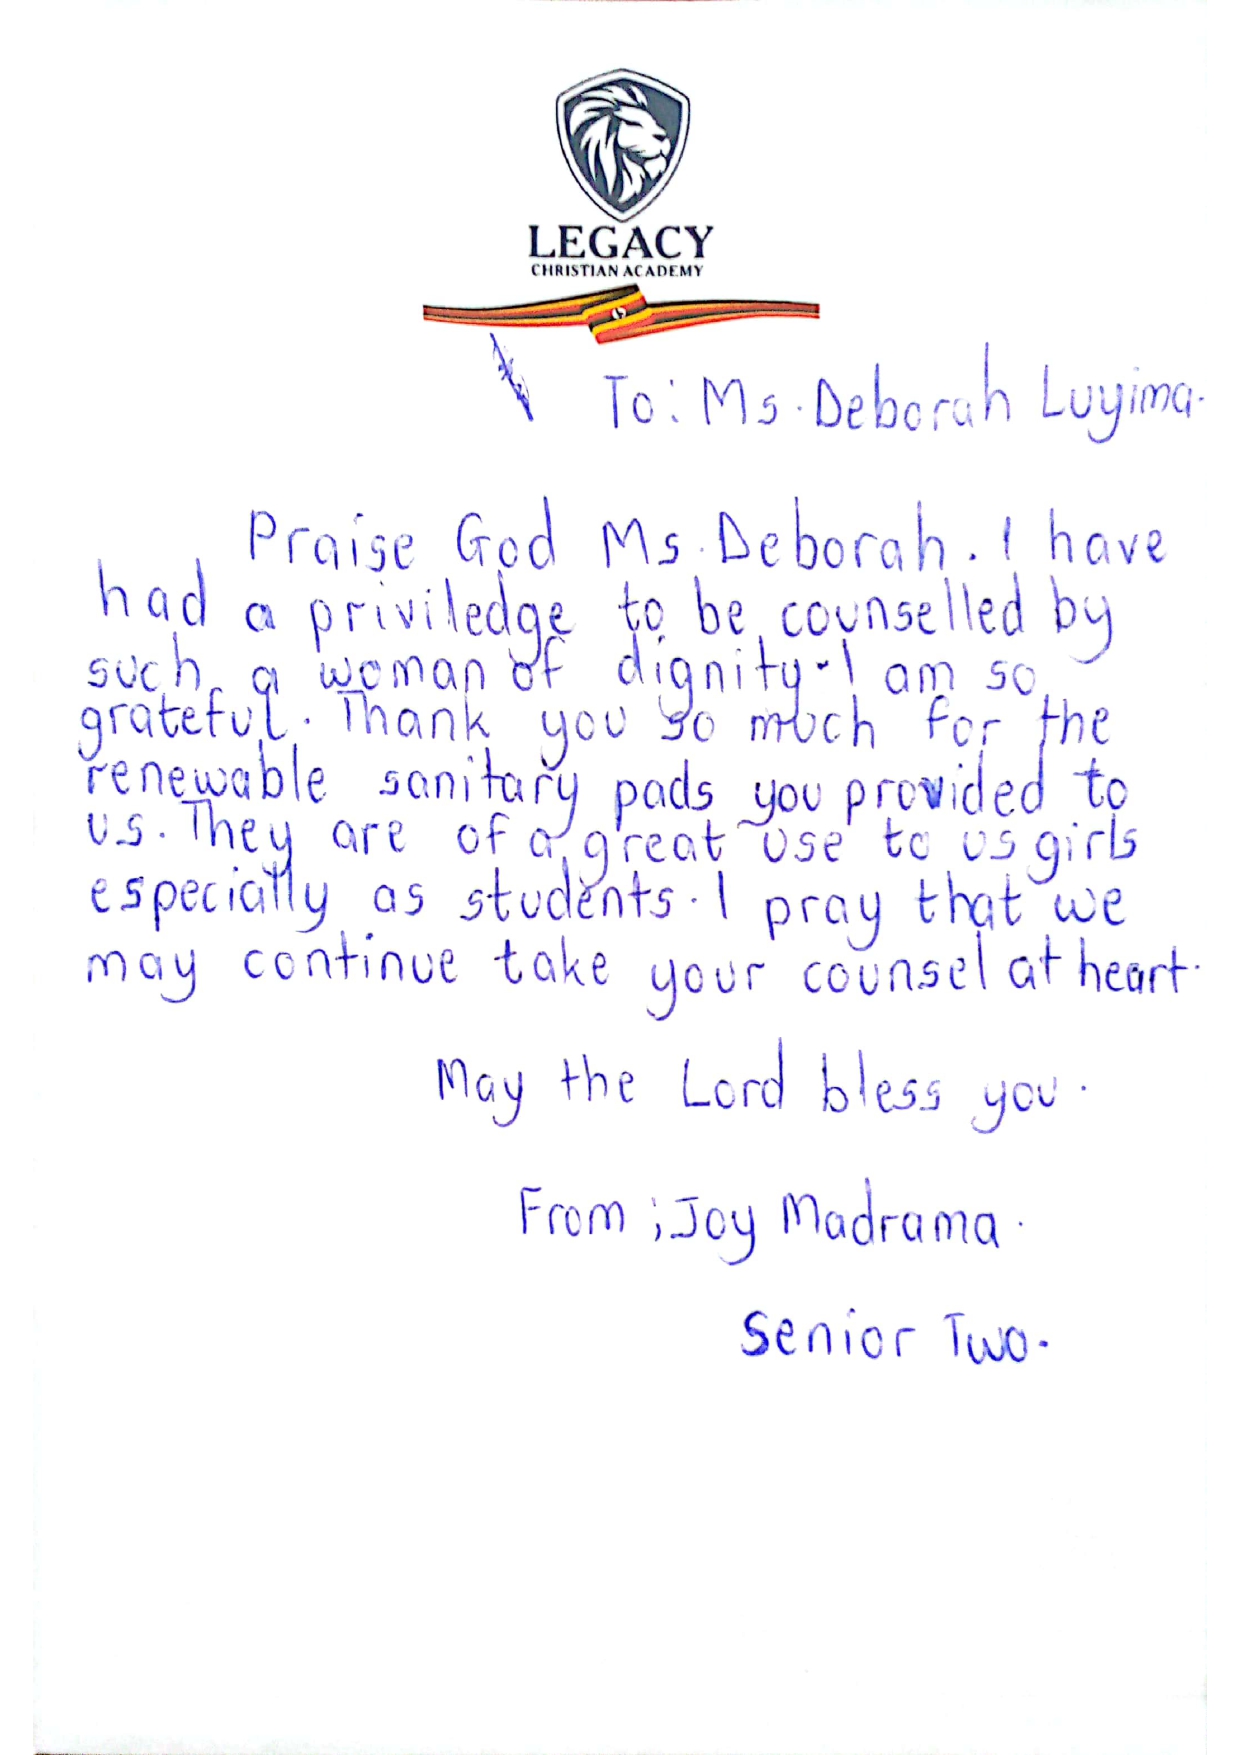 LEGACY
CHRISTIAN ACADEMY
To: Ms. Deborah Luyima.
Praise God Ms. Deborah. I have
had a priviledge to be counselled by
such a woman of dignity. I am so
grateful. Thank you so much for the
renewable sanitary pads you provided to
us. They are of a great use to us girls
especially as students. I pray that we
may continue take your counsel at heart.
May the Lord bless you.
From ; Joy Madrama.
Senior Two.